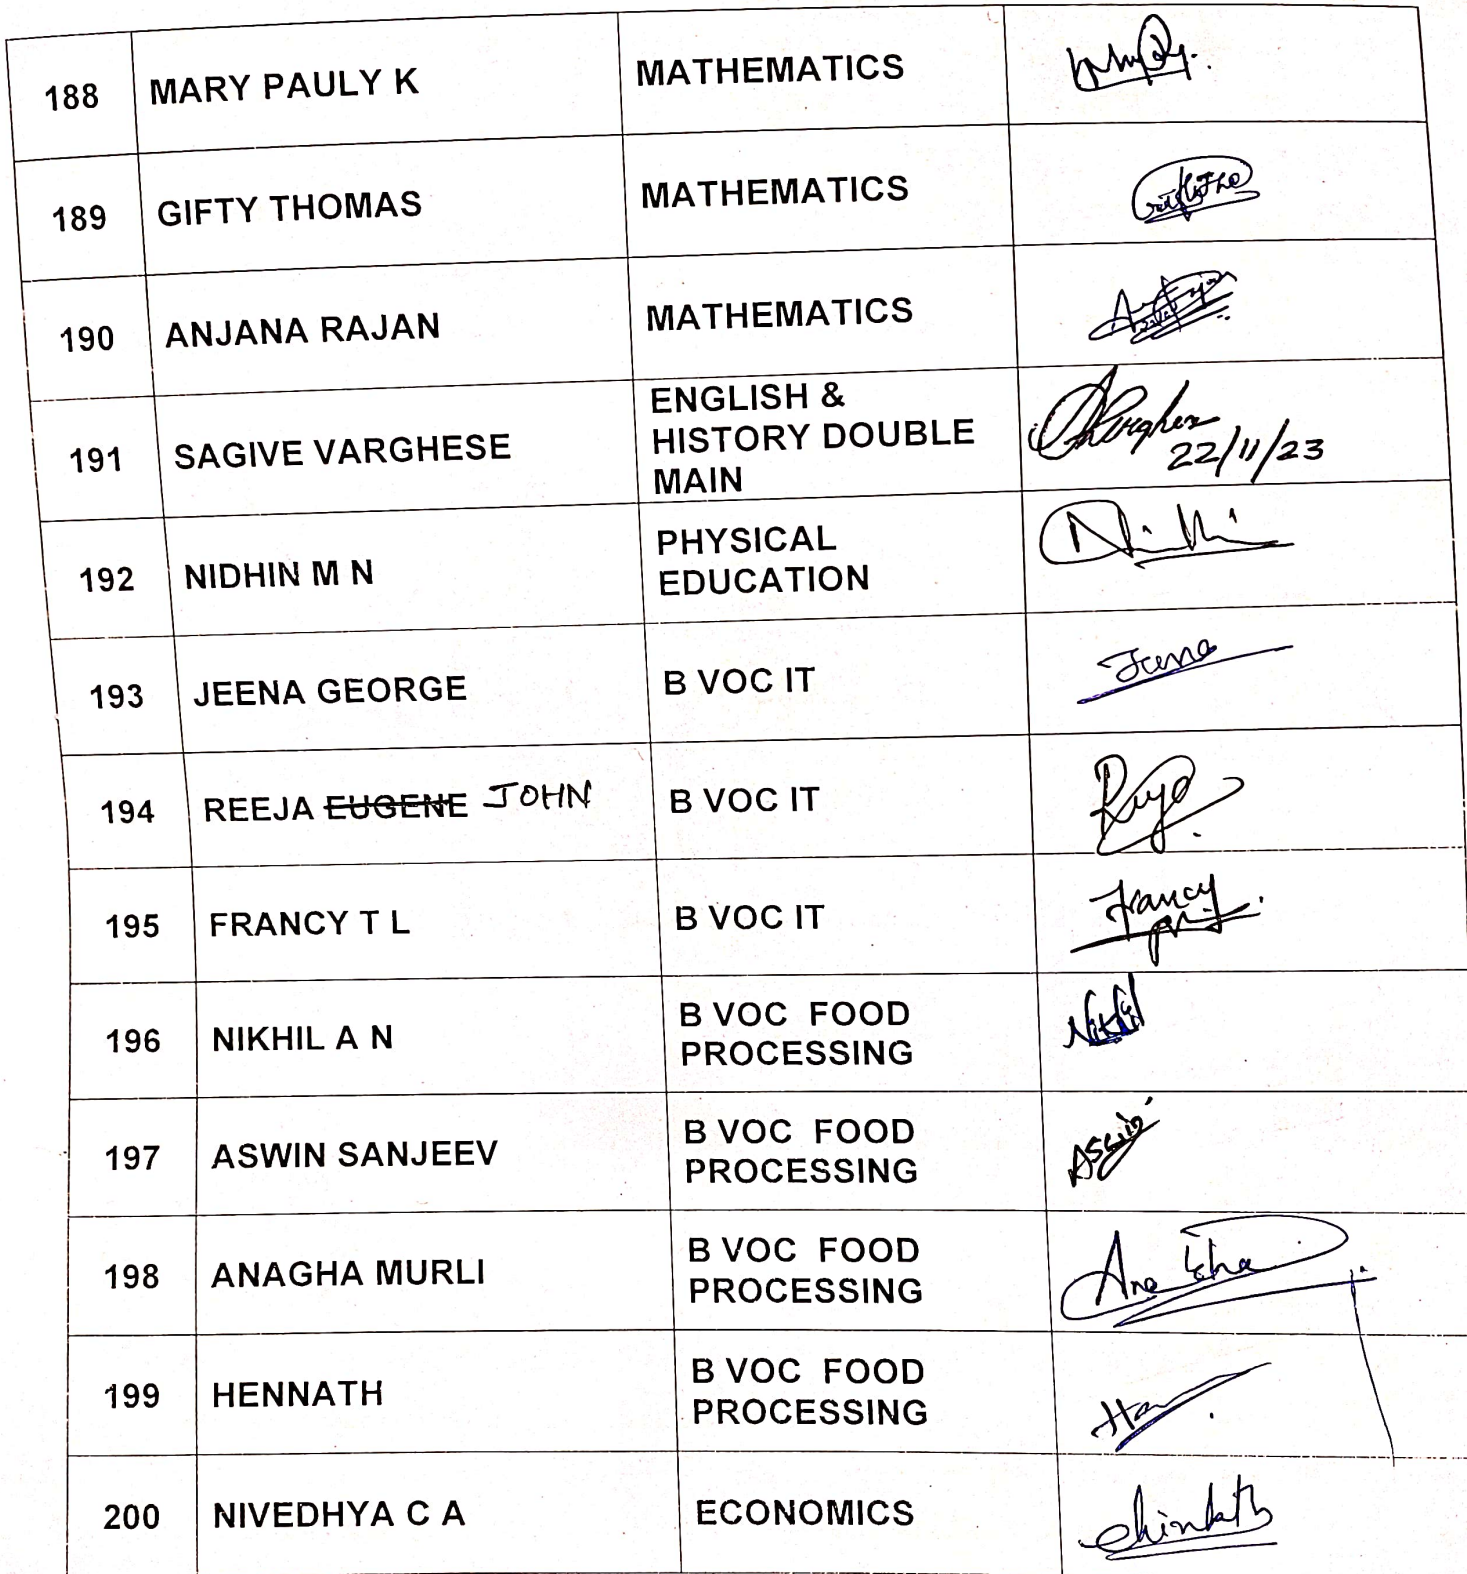 188 MARY PAULY K MATHEMATICS
189 GIFTY THOMAS MATHEMATICS
190 ANJANA RAJAN MATHEMATICS
191 SAGIVE VARGHESE ENGLISH &
HISTORY DOUBLE
MAIN
22/11/23
192 NIDHIN M N PHYSICAL
EDUCATION
193 JEENA GEORGE B VOC IT Jeena
194 REEJA EUGENE JOHN B VOC IT
195 FRANCY T L B VOC IT Francy
196 NIKHIL A N B VOC FOOD
PROCESSING
Nikhil
197 ASWIN SANJEEV B VOC FOOD
PROCESSING
198 ANAGHA MURLI B VOC FOOD
PROCESSING
199 HENNATH B VOC FOOD
PROCESSING
200 NIVEDHYA C A ECONOMICS